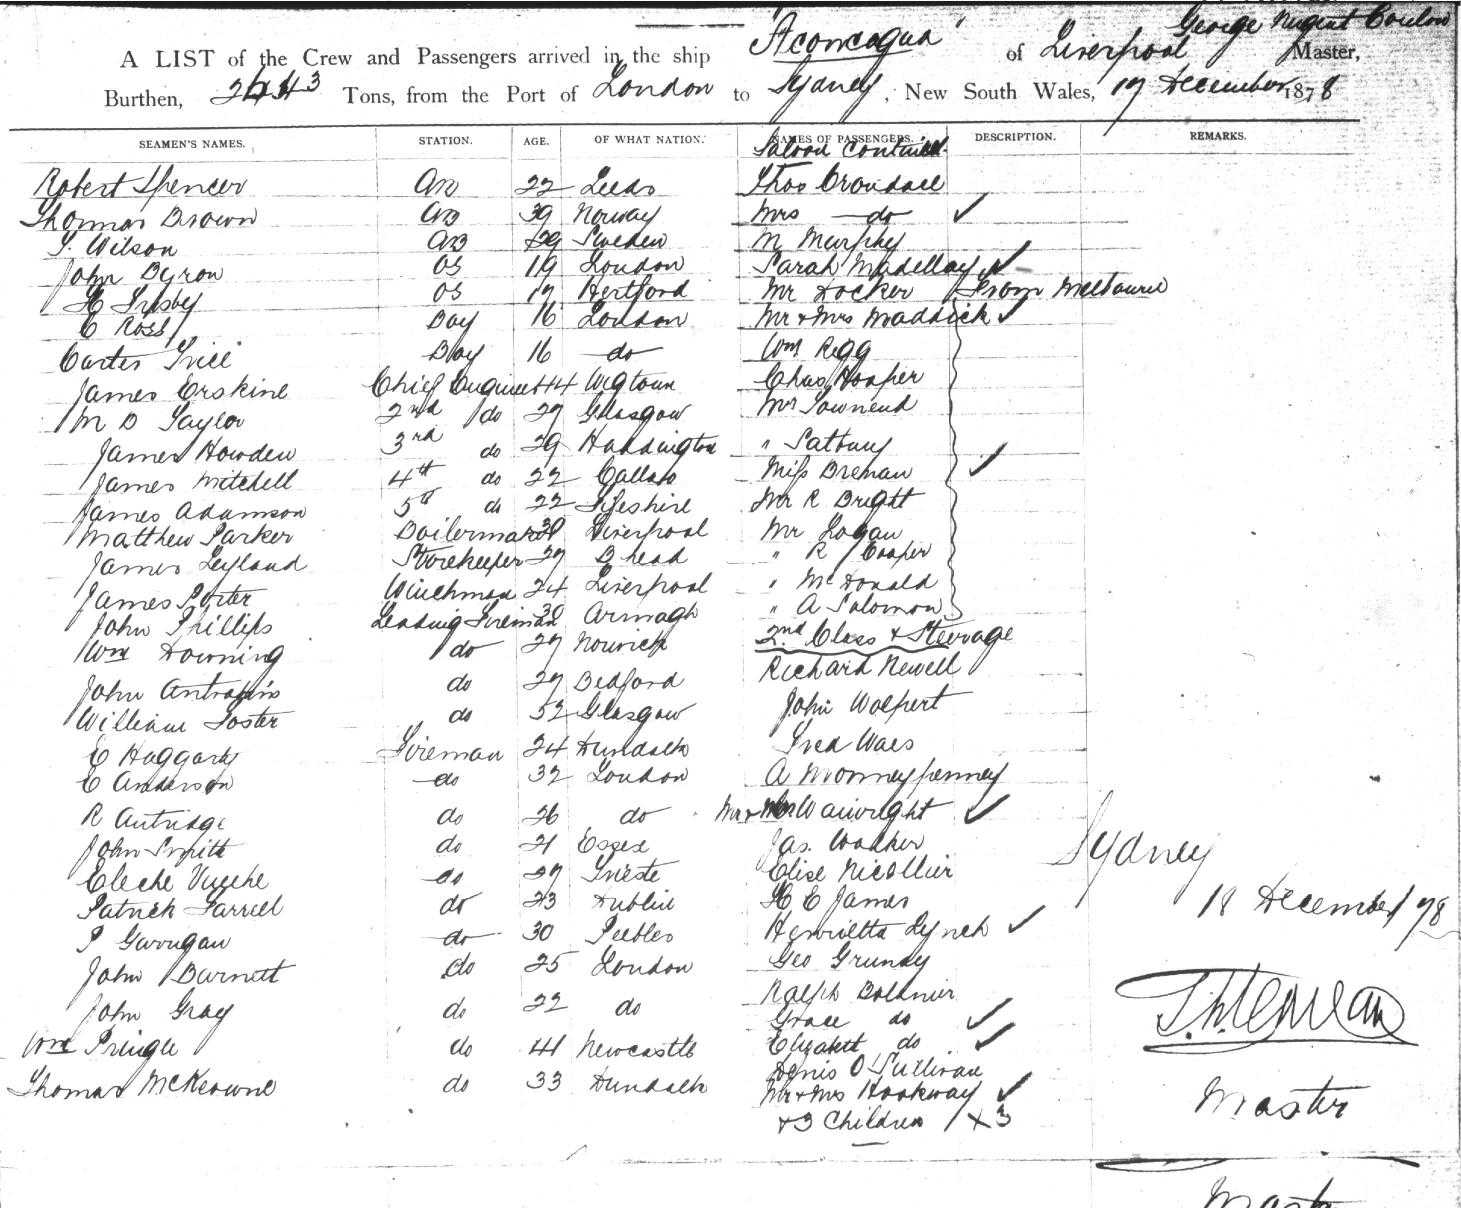 "Aconcagua" George Nugent Conlan
A LIST of the Crew and Passengers arrived in the ship of Liverpool Master,
Burthen, Tons, from the Port of London to Sydney, New South Wales, 17 December 1878
SEAMEN'S NAMES. STATION. AGE. OF WHAT NATION. NAMES OF PASSENGERS. DESCRIPTION. REMARKS.
Saloon continued
Robert Spencer AB 22 Leeds Thos Crondace
Thomas Brown AB 39 Norway Mrs do ✓
T. Wilson AB 29 Sweden M Murphy
John Byron OS 19 London Sarah Madellay ✓
H Irisby OS 17 Hertford Mr Docker From Melbourne
C Ross Boy 16 London Mr & Mrs Maddick ✓
Carter Boy 16 do Wm Rigg
James Erskine Chief Engineer 44 Wigtown Chas Hooper
M D Taylor 2nd do 27 Glasgow Mr Townend
James Howden 3rd do 29 Haddington "
James Mitchell 4th do 22 Callao Miss Brenan ✓
James Adamson 5th do 22 Fifeshire Mr R Bright
Matthew Parker Boilermaker 30 Liverpool Mr Logan
James Leyland Storekeeper 27 B head " R Cooper
James Porter Winchman 24 Liverpool " McDonald
John Phillips Leading Fireman 30 Armagh " A Solomon
2nd Class & Steerage
Wm Downing do 27 Norwich Richard Newell
John do 27 Bedford
William Foster do 52 Glasgow John Wolpert
E Haggarty Fireman 24 Dundalk Fred Waes
C Anderson do 32 London A Monneypenney
R Autridge do 26 do Mr & Mrs Wainright ✓
John Smith do 21 Essex Jas. Walker Sydney
Eleche do 27 Trieste Elise Nicollier
Patrick Farrell do 23 Dublin H E James 18 December 78
P Garrigan do 30 Peebles Henrietta Lynch ✓
John Barnett do 25 London Geo Grundy
John Gray do 22 do Ralph
Grace do ✓
Wm Pringle do 41 Newcastle Elizabeth do ✓
Denis O'Sullivan
Thomas McKeowne do 33 Dundalk Mr & Mrs Hookway ✓ Master
& 3 Children × 3